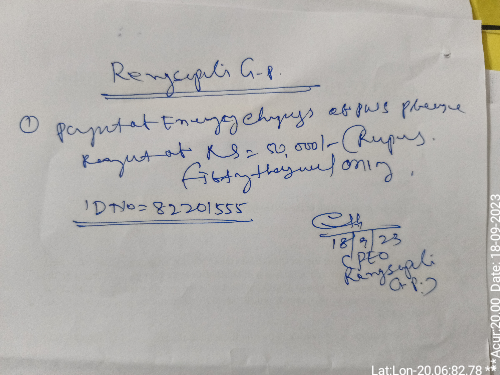 Rengsapali G.P.
① Payment of Energy Charges of PWS please
Request of RS = 50,000/- (Rupees
Fifty thousand) only.
ID No = 82201555
18/9/23
(PEO
Rengsapali
G.P.)
Lat:Lon-20.06:82.78 ***Acur:20.00 Date: 18-09-2023